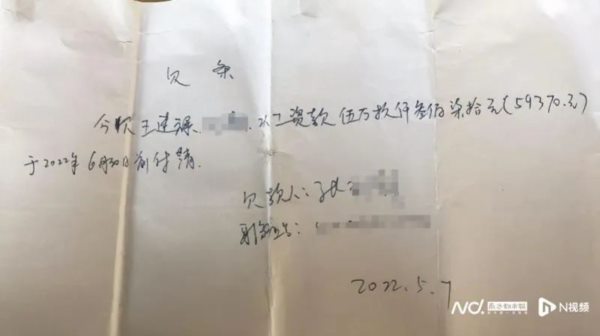 欠条
今欠王连 工资款伍万玖仟叁佰柒拾元(59370.元)
于2022年6月30日前付清.
欠款人:
身份证号:
2022.5.7
N视频